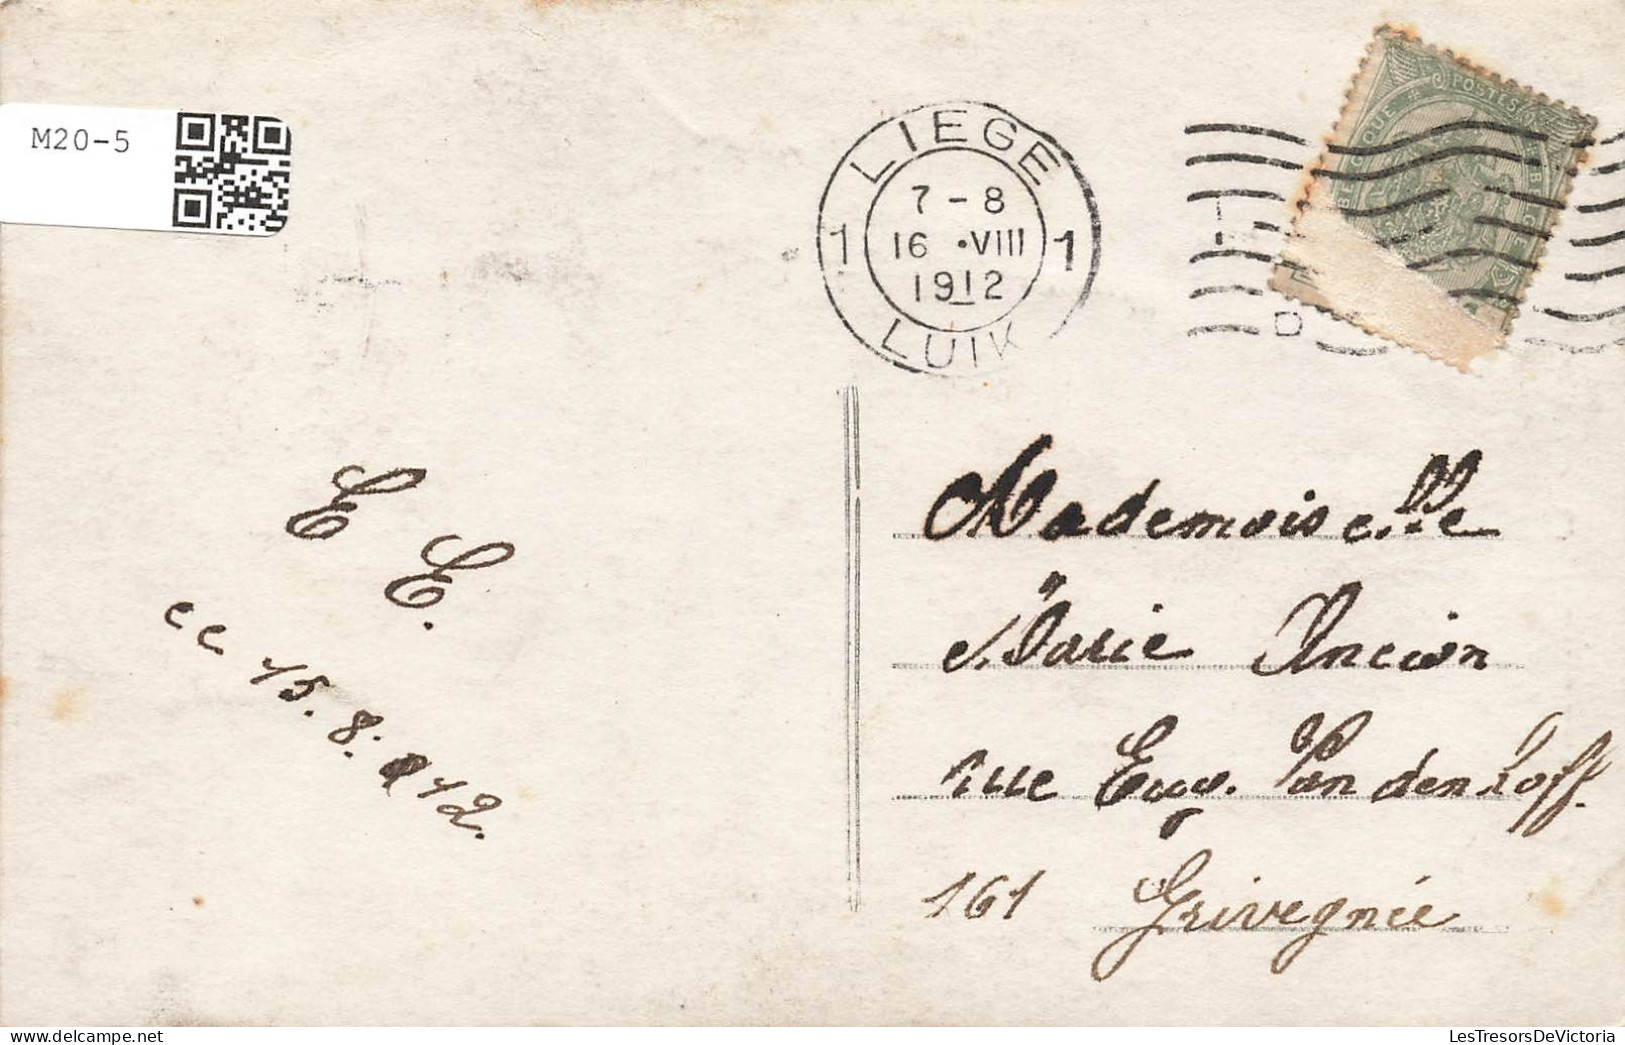 M20-5
LIEGE
7-8
1 16 •VIII 1
1912
LUIK
POSTES
BELGIQUE
E E.
ce 15.8.12.
Mademoiselle
Marie Ancion
rue Eug. Vandenhoff.
161 Grivegnée
LesTresorsDeVictoria